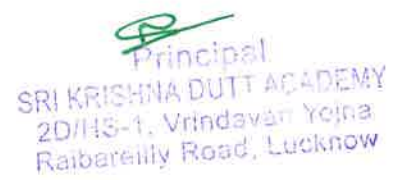 Principal
SRI KRISHNA DUTT ACADEMY
2D/HS-1, Vrindavan Yojna
Raibareilly Road, Lucknow